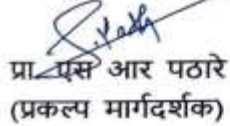 प्रा. एस आर पठारे
(प्रकल्प मार्गदर्शक)